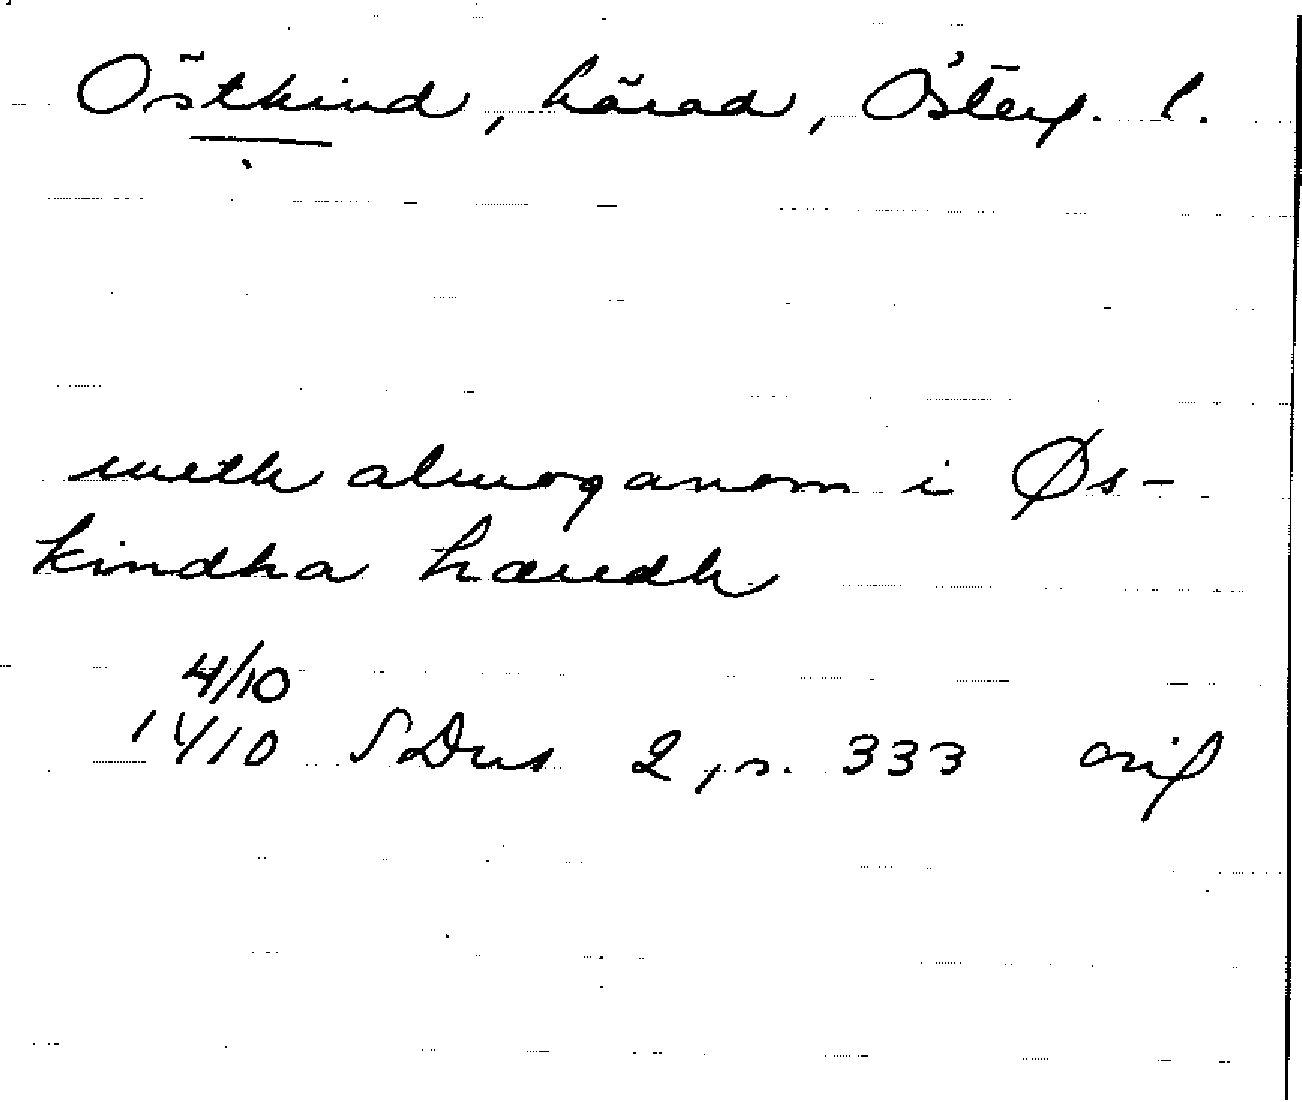 Östkind, härad, Österg. l.
meth almoganom i Øs-
kindha hæredh
4/10
14/10 SDns 2, s. 333 orig